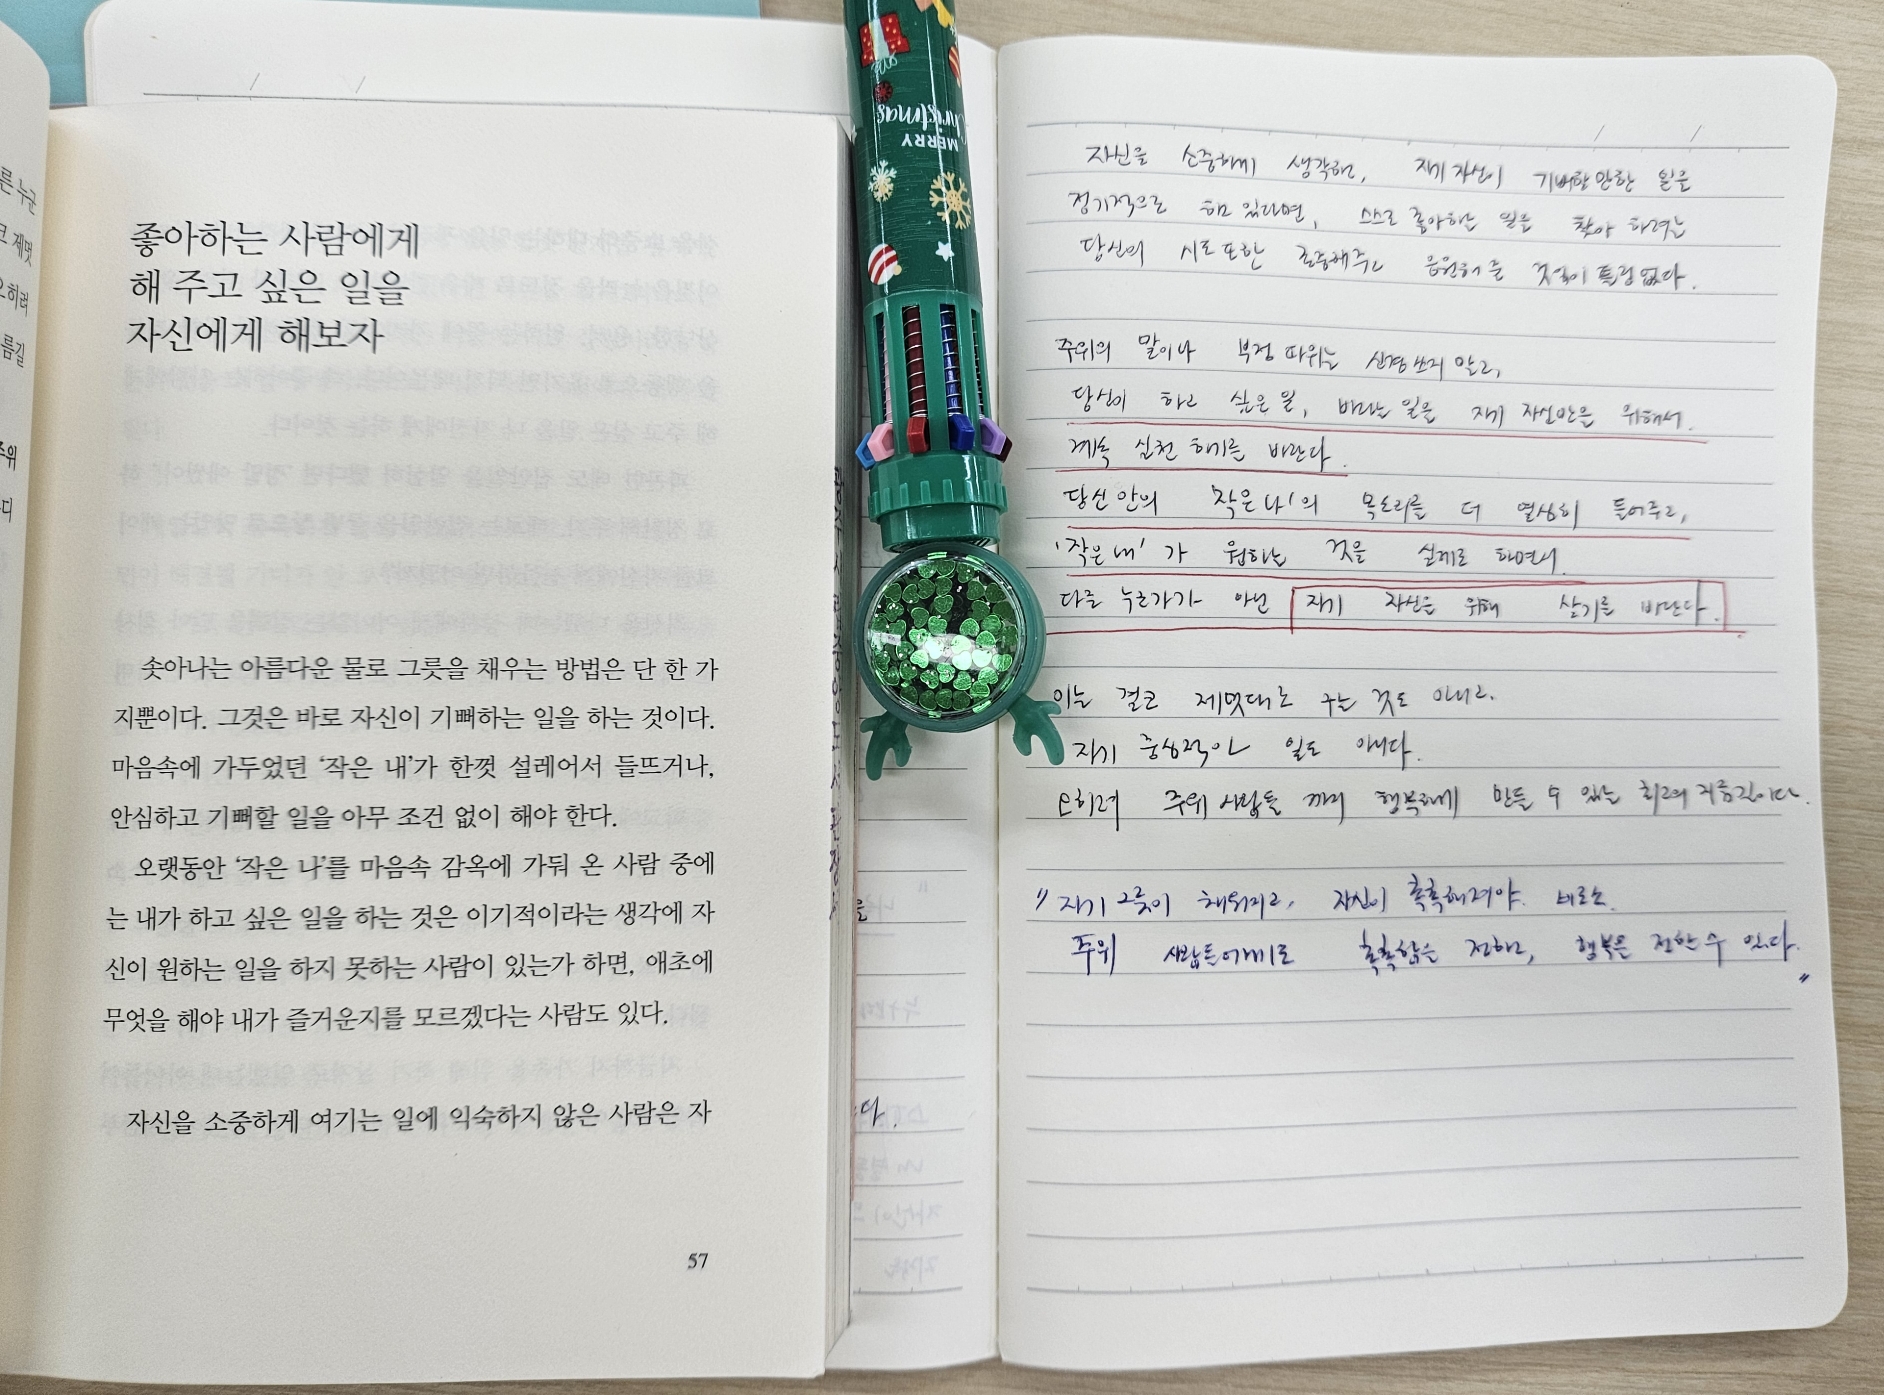 른 누군
코 제멋
오히려
름길
주위
디
좋아하는 사람에게
해 주고 싶은 일을
자신에게 해보자
솟아나는 아름다운 물로 그릇을 채우는 방법은 단 한 가
지뿐이다. 그것은 바로 자신이 기뻐하는 일을 하는 것이다.
마음속에 가두었던 ‘작은 내’가 한껏 설레어서 들뜨거나,
안심하고 기뻐할 일을 아무 조건 없이 해야 한다.
오랫동안 ‘작은 나’를 마음속 감옥에 가둬 온 사람 중에
는 내가 하고 싶은 일을 하는 것은 이기적이라는 생각에 자
신이 원하는 일을 하지 못하는 사람이 있는가 하면, 애초에
무엇을 해야 내가 즐거운지를 모르겠다는 사람도 있다.
자신을 소중하게 여기는 일에 익숙하지 않은 사람은 자
57
MERRY
Christmas
를
다.
자신을 소중하게 생각해, 자기 자신이 기뻐할 만한 일을
정기적으로 하고 있다면, 스스로 좋아하는 일을 찾아 하려는
당신의 시도 또한 존중해주고 응원해 줄 것임이 틀림없다.
주위의 말이나 부정 따위는 신경 쓰지 말고,
당신이 하고 싶은 일, 바라는 일을 자기 자신만을 위해서
계속 실천하기를 바란다.
당신 안의 '작은 나'의 목소리를 더 열심히 들어주고,
'작은 내'가 원하는 것을 실제로 하면서
다른 누군가가 아닌 자기 자신을 위해 살기를 바란다.
이는 결코 제멋대로 구는 것도 아니고.
자기 중심적인 일도 아니다.
오히려 주위 사람들까지 행복하게 만들 수 있는 최고의 지름길이다.
"자기 그릇이 채워지고, 자신이 촉촉해져야 비로소
주위 사람들에게도 촉촉함을 전하고, 행복을 전할 수 있다."